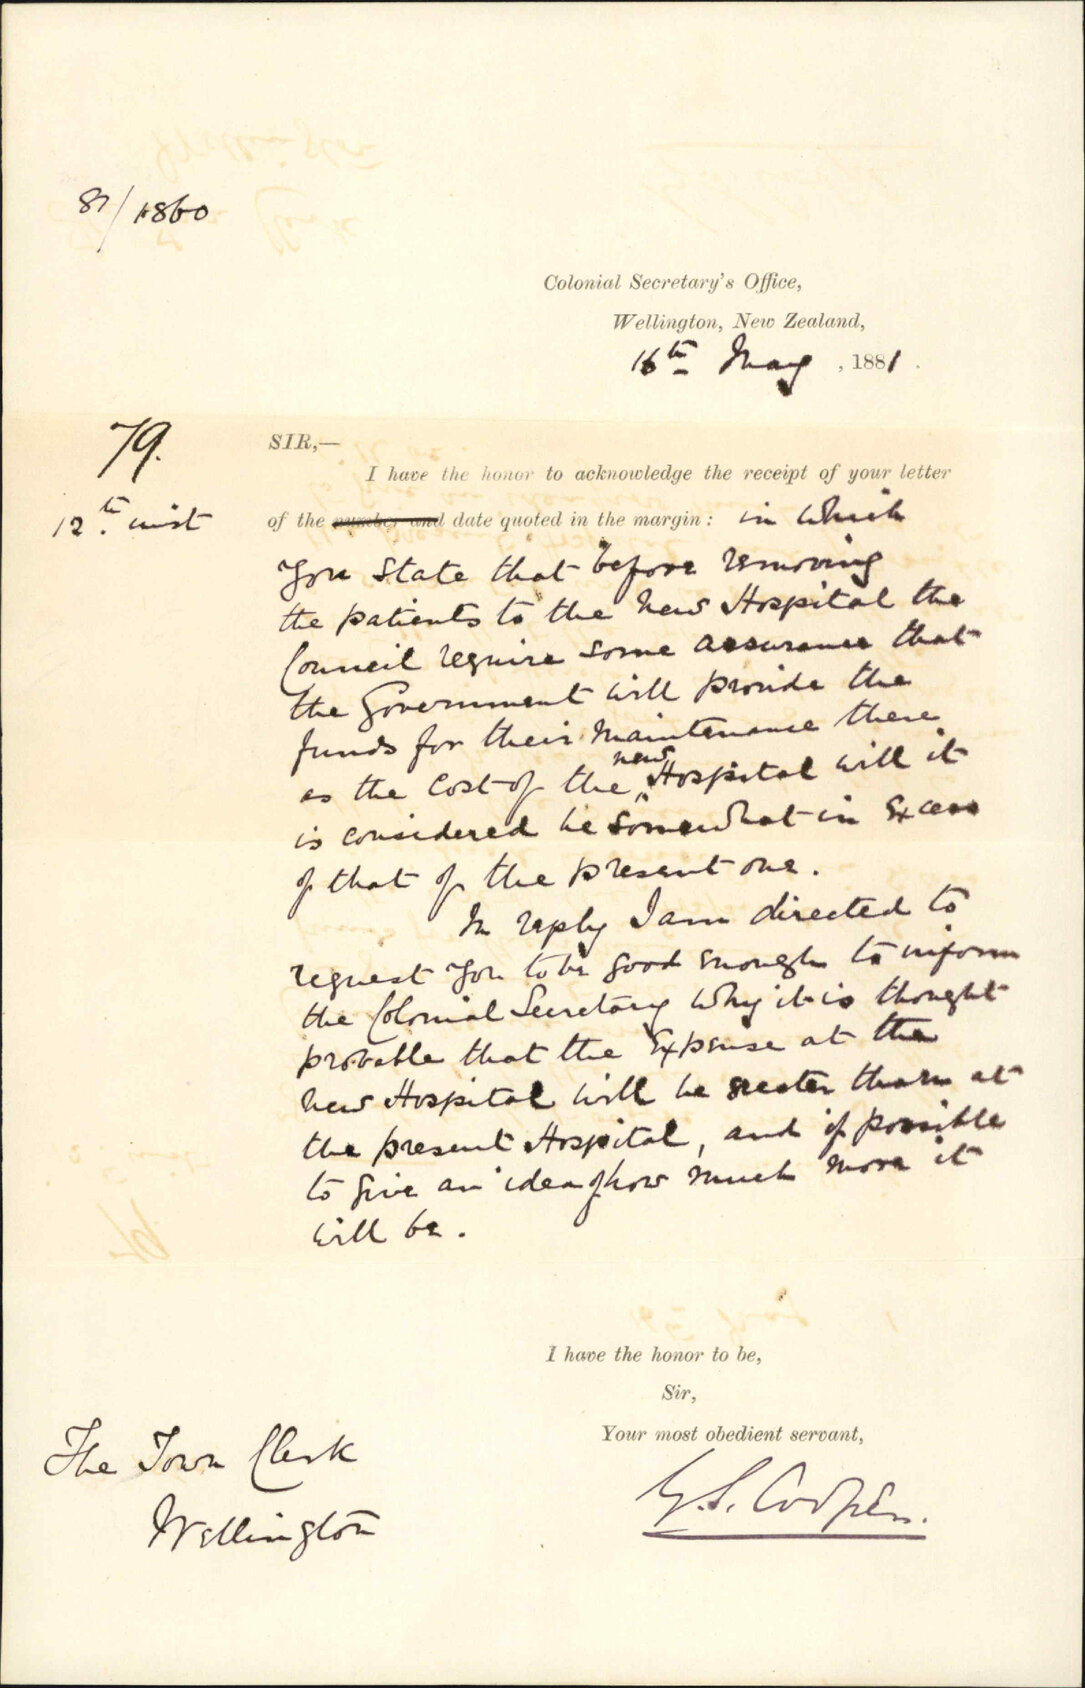 81/1860
Colonial Secretary's Office,
Wellington, New Zealand,
16th May, 1881.
79.
12th inst
SIR,—
I have the honor to acknowledge the receipt of your letter
of the number and date quoted in the margin: in which
you state that before removing
the patients to the new Hospital the
Council require some assurance that
the Government will provide the
funds for their maintenance there
as the cost of the new Hospital will it
is considered be somewhat in excess
of that of the present one.
In reply I am directed to
request you to be good enough to inform
the Colonial Secretary why it is thought
probable that the expense at the
new Hospital will be greater than at
the present Hospital, and if possible
to give an idea of how much more it
will be.
I have the honor to be,
Sir,
Your most obedient servant,
G. S. Cooper.
The Town Clerk
Wellington